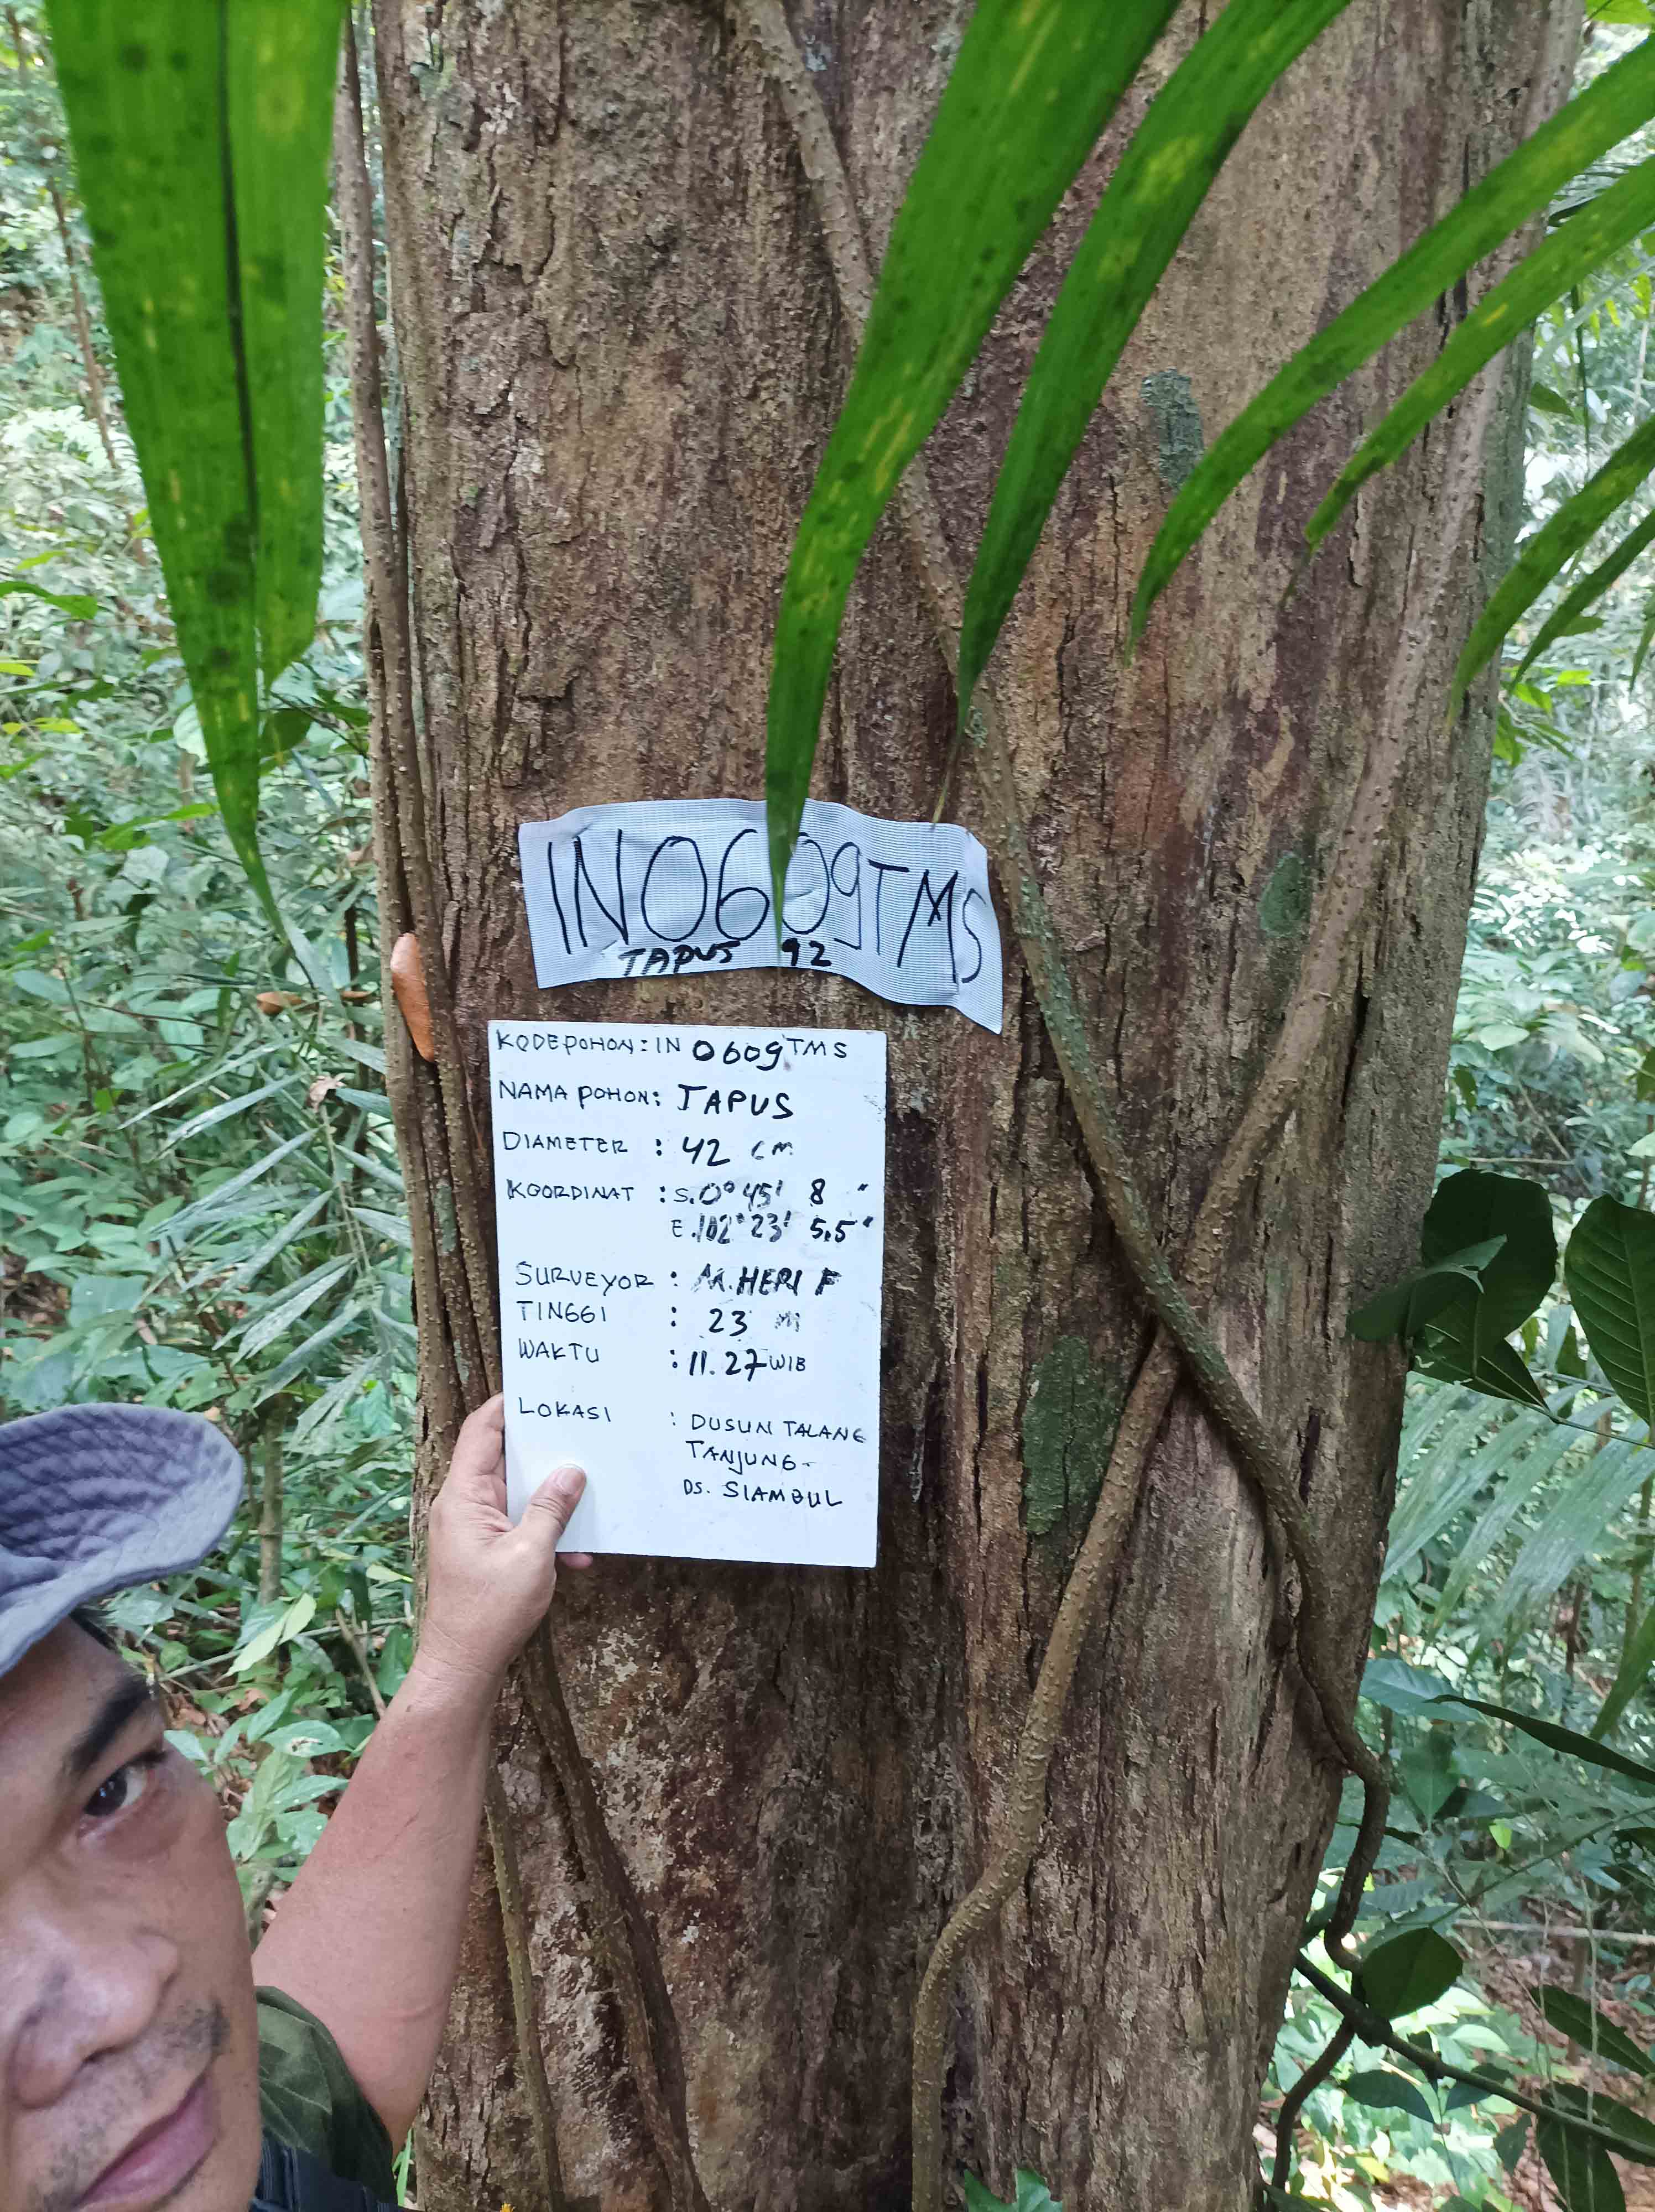 IN0609TMS
TAPUS 92
KODE POHON : IN 0609 TMS
NAMA POHON : TAPUS
DIAMETER : 42 cm
KOORDINAT : S. 0° 45' 8 "
E. 102° 23' 5,5"
SURVEYOR : M. HERI F
TINGGI : 23 m
WAKTU : 11.27 WIB
LOKASI : DUSUN TALANG
TANJUNG-
DS. SIAMBUL